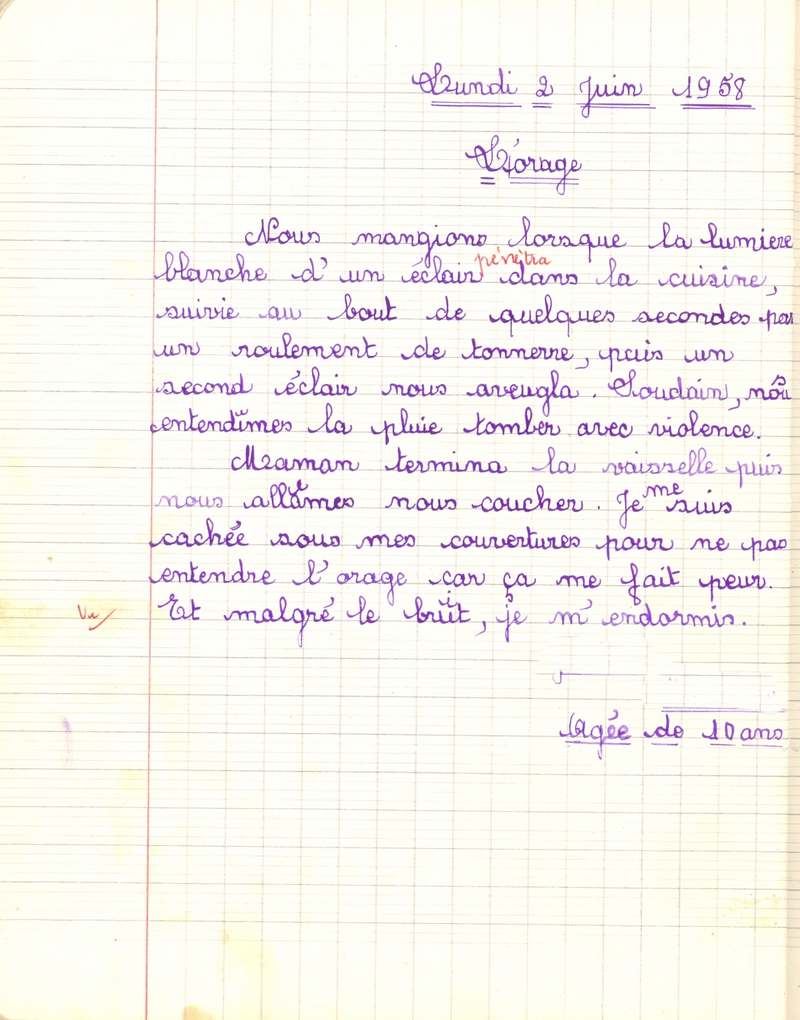 Lundi 2 Juin 1958
L'orage
Nous mangions lorsque la lumiere
pénétra
blanche d'un éclair dans la cuisine,
suivie au bout de quelques secondes par
un roulement de tonnerre, puis un
second éclair nous aveugla. Soudain, nous
entendîmes la pluie tomber avec violence.
Maman termina la vaisselle puis
nous allâmes nous coucher. Je me suis
cachée sous mes couvertures pour ne pas
entendre l'orage car ça me fait peur.
Vu
Et malgré le bruit, je m'endormis.
Agée de 10 ans